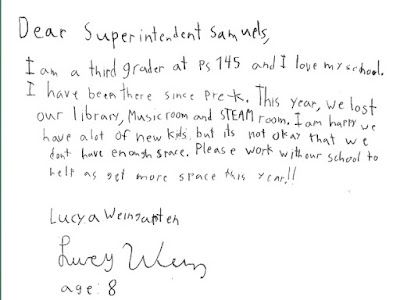 Dear Superintendent Samuels,
I am a third grader at PS 145 and I love my school.
I have been there since pre-k. This year, we lost
our library, Music room and STEAM room. I am happy we
have alot of new kids, but its not okay that we
dont have enough space. Please work with our school to
help as get more space this year!!
Lucy a Weingarten
Lucy
age: 8